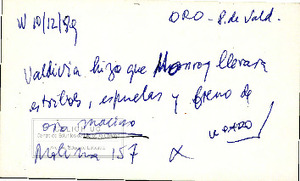 W 10/12/89
ORO - P. de Vald.
Valdivia hizo que Monroy llevara
estribos, espuelas y freno de
oro macizo
Molina 157